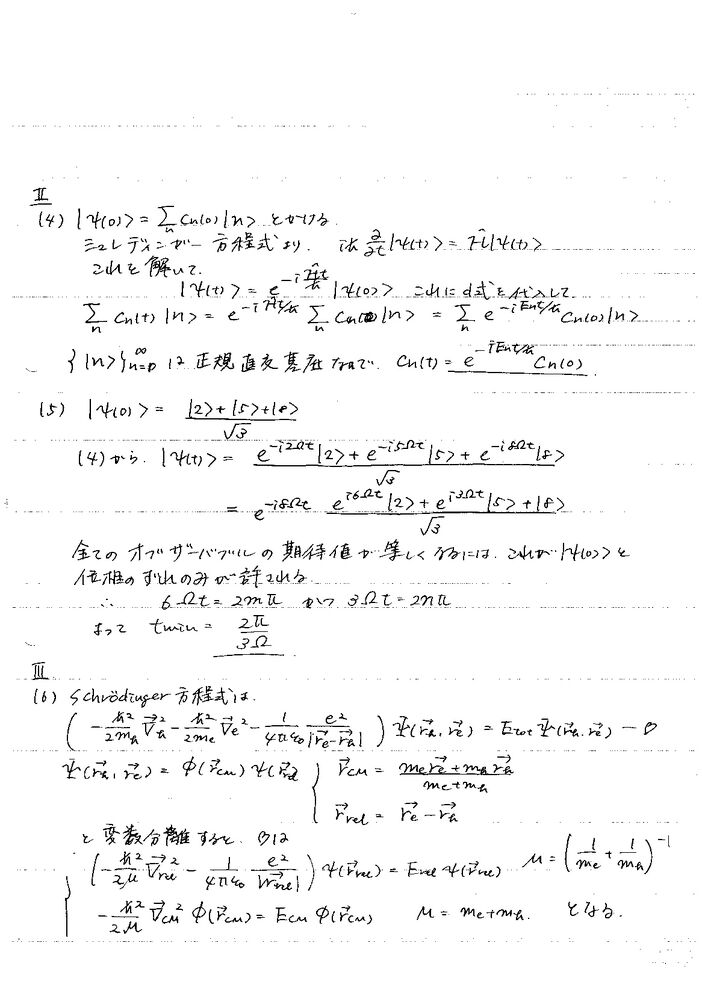 II
(4) |ψ(0)> = Σ_n Cn(0)|n> とかける.
シュレディンガー方程式より. iħ ∂/∂t |ψ(t)> = Ĥ|ψ(t)>
これを解いて.
|ψ(t)> = e^{-i Ĥt/ħ} |ψ(0)> これに d式を代入して
Σ_n Cn(t) |n> = e^{-iĤt/ħ} Σ_n Cn(0)|n> = Σ_n e^{-iEnt/ħ} Cn(0)|n>
{|n>}_{n=0}^∞ は 正規直交基底なので. Cn(t) = e^{-iEnt/ħ} Cn(0).
(5) |ψ(0)> = (|2>+|5>+|8>)/√3
(4)から. |ψ(t)> = (e^{-i2Ωt}|2> + e^{-i5Ωt}|5> + e^{-i8Ωt}|8>)/√3
= e^{-i8Ωt} (e^{i6Ωt}|2> + e^{i3Ωt}|5> + |8>)/√3
全てのオブザーバブルの期待値が等しくなるには. これが|ψ(0)>と
位相のずれのみが許される.
∴ 6Ωt = 2mπ かつ 3Ωt = 2nπ
よって tmin = 2π/3Ω
III
(6) Schrödinger方程式は.
( -ħ²/2m_h ∇⃗_h² - ħ²/2m_e ∇⃗_e² - 1/4πε₀ e²/|r⃗_e - r⃗_h| ) Ψ(r⃗_h, r⃗_e) = E_tot Ψ(r⃗_h, r⃗_e) — ①
Ψ(r⃗_h, r⃗_e) = Φ(r⃗_CM) ψ(r⃗_rel) { r⃗_CM = (m_e r⃗_e + m_h r⃗_h)/(m_e + m_h)
r⃗_rel = r⃗_e - r⃗_h
と変数分離すると. ①は
{ ( -ħ²/2μ ∇⃗_rel² - 1/4πε₀ e²/|r⃗_rel| ) ψ(r⃗_rel) = E_rel ψ(r⃗_rel) μ = (1/m_e + 1/m_h)^{-1}
-ħ²/2M ∇⃗_CM² Φ(r⃗_CM) = E_CM Φ(r⃗_CM) M = m_e + m_h. となる.